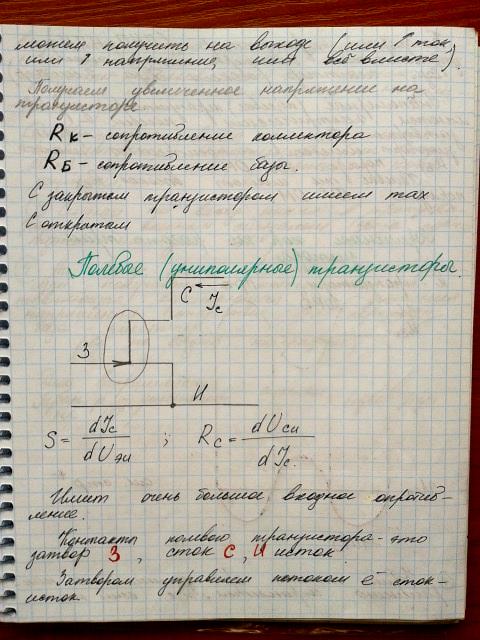 можем получить на выходе (или ↑ ток,
или ↑ напряжение, или всё вместе).
Получаем увеличенное напряжение на
транзисторе.
Rк – сопротивление коллектора
RБ – сопротивление базы.
С закрытом транзистором имеем max
С открытом
Полевые (униполярные) транзисторы.
С Iс
З
И
S = dIc / dUзи ; Rc = dUси / dIc.
Имеет очень большое входное сопротив-
ление.
Контакты полевого транзистора – это
затвор З, сток С, И исток
Затвором управляем потоком ē сток-
исток